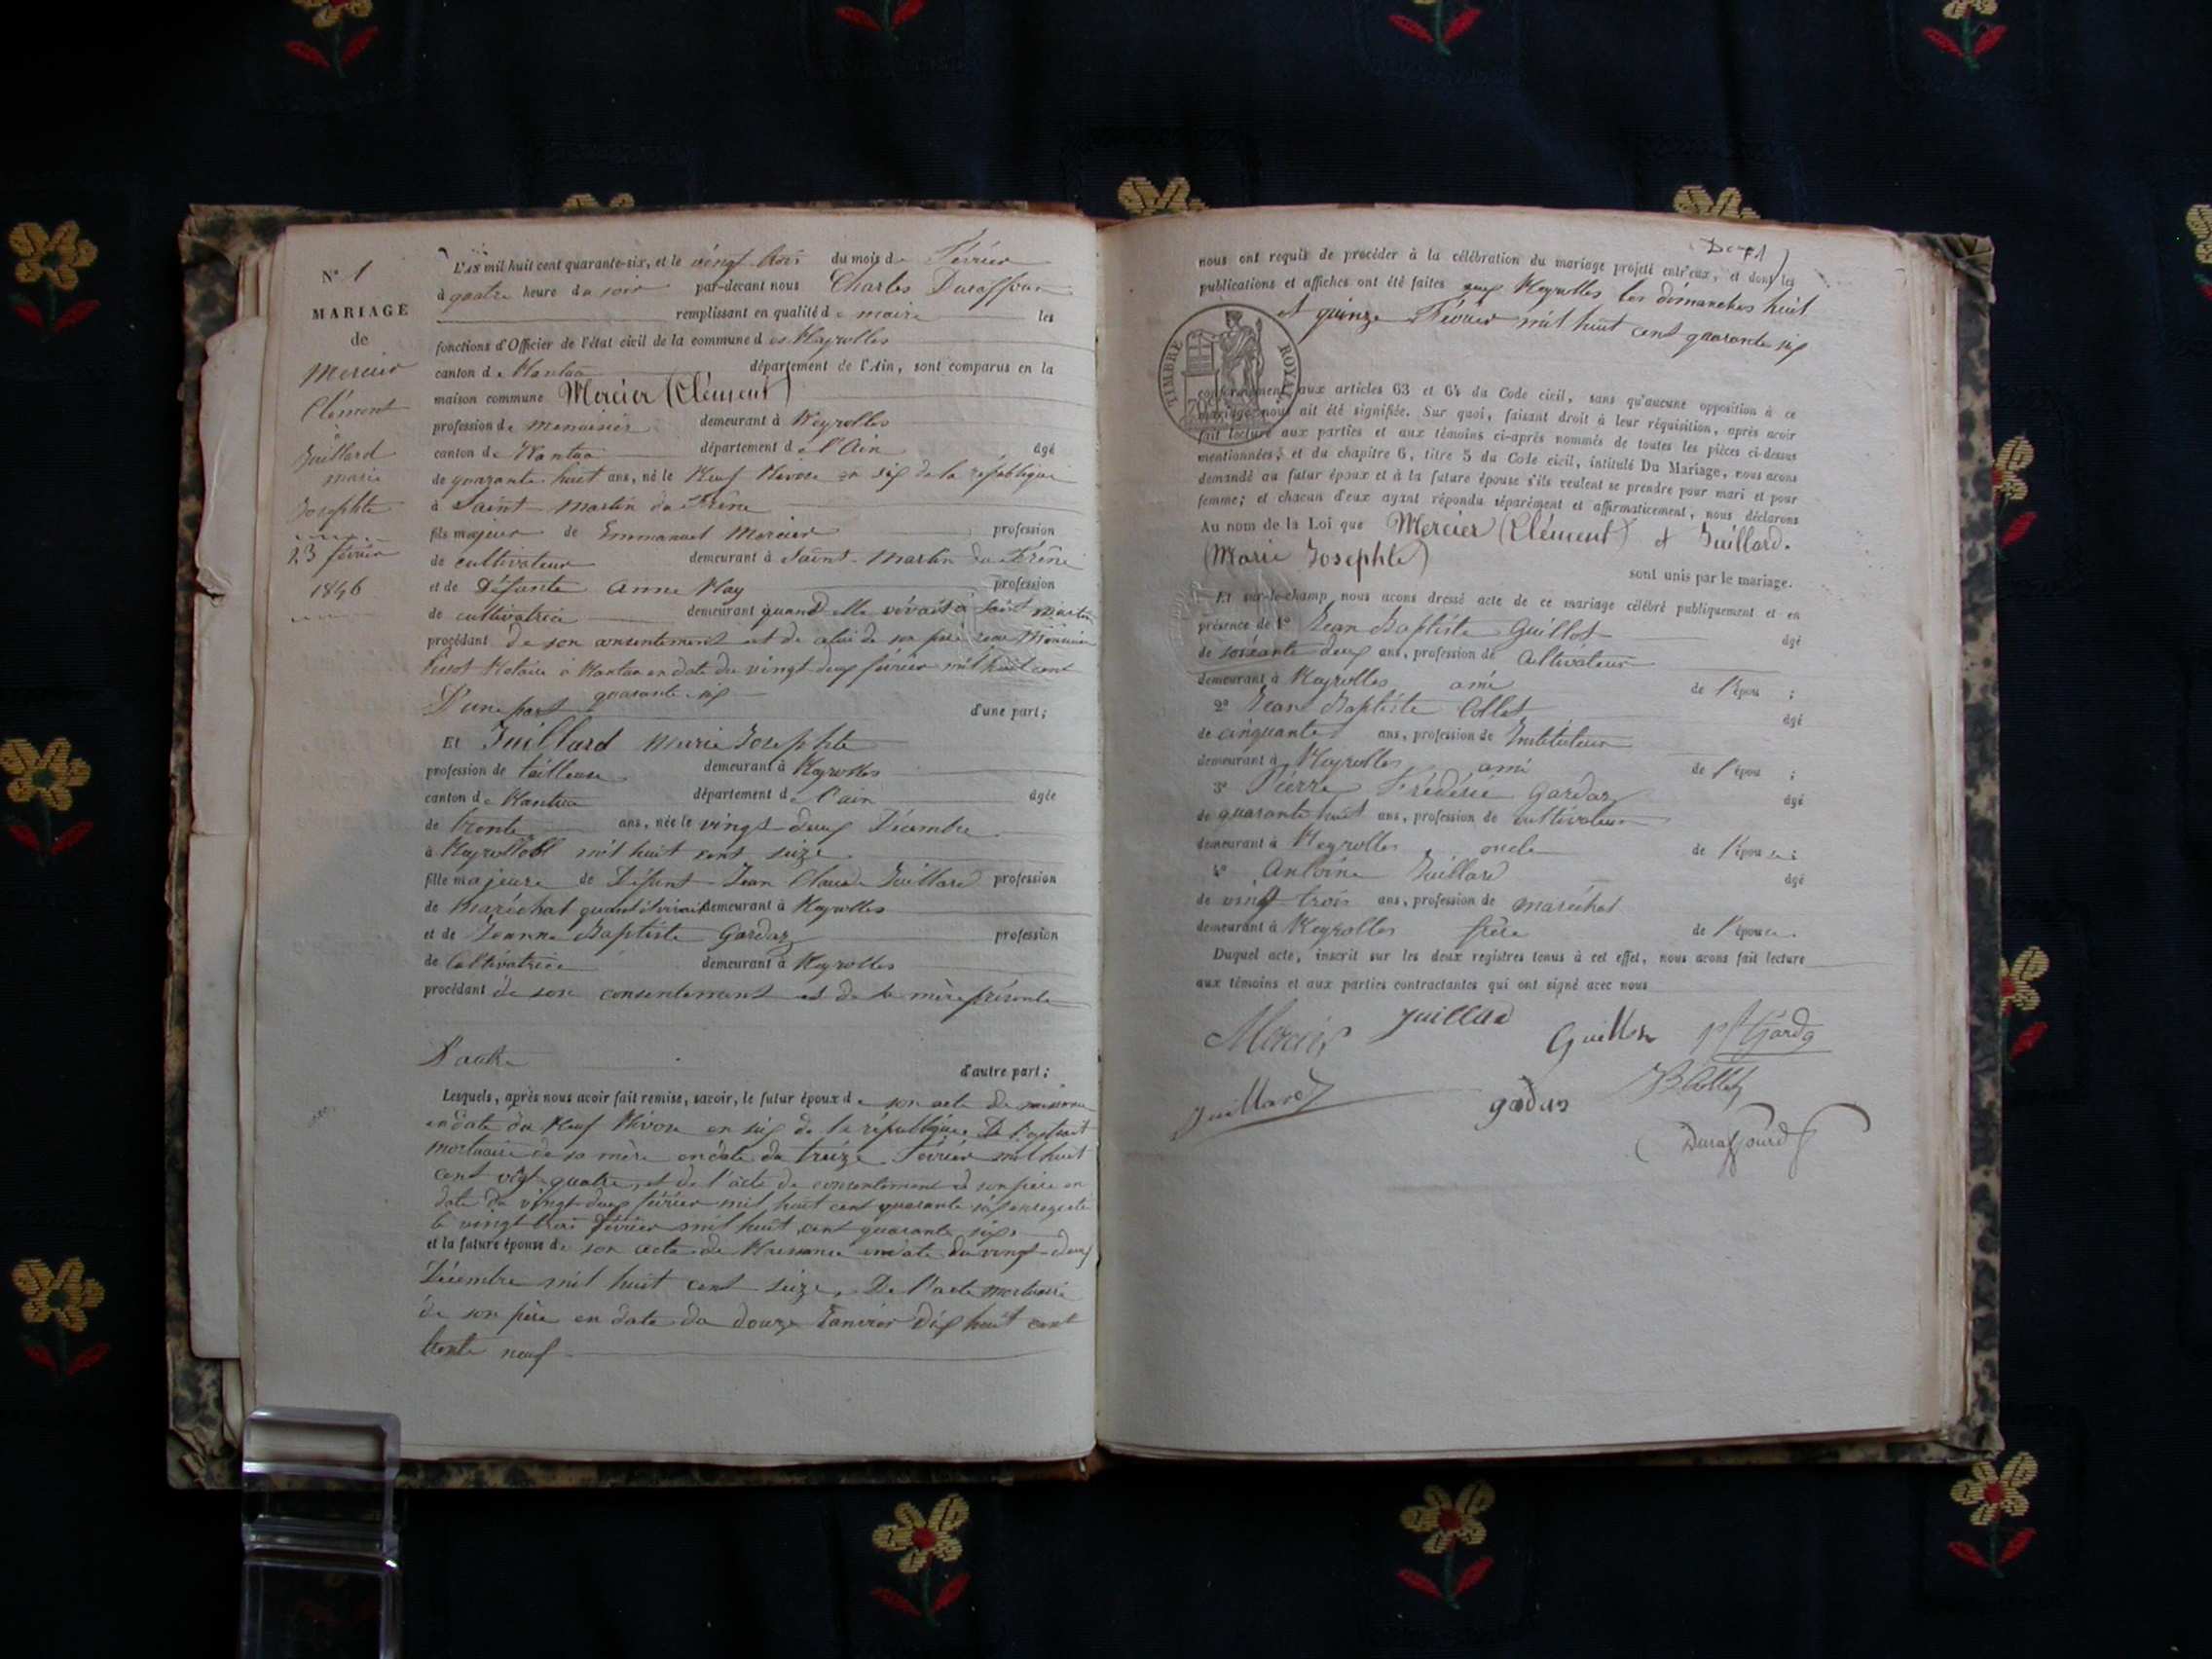 N° 1
MARIAGE
de
Mercier
Clément
&
Juillard
marie
Josephte
23 février
1846
L'AN mil huit cent quarante-six, et le vingt trois du mois de Février
à quatre heure du soir par-devant nous Charles Duraffourd
remplissant en qualité de maire les
fonctions d'Officier de l'état civil de la commune de Neyrolles
canton de Nantua département de l'Ain, sont comparus en la
maison commune Mercier (Clément)
profession de menuisier demeurant à Neyrolles
canton de Nantua département de l'Ain âgé
de quarante huit ans, né le Neuf Nivose an six de la république
à Saint Martin du Frêne
fils majeur de Emmanuel Mercier profession
de cultivateur demeurant à Saint-Martin du Frêne
et de Défunte Anne Nay profession
de cultivatrice demeurant quand elle vivait à Saint Martin
procédant de son consentement et de celui de son père
Notaire à Nantua en date du vingt deux février mil huit cent
quarante-six
D'une part d'une part;
Et Juillard Marie Josephte
profession de tailleuse demeurant à Neyrolles
canton de Nantua département de l'ain âgée
de trente ans, née le vingt-deux Décembre
à Neyrolles mil huit cent seize
fille majeure de Défunt Jean Claude Juillard profession
de maréchal quand il vivait demeurant à Neyrolles
et de Jeanne Baptiste Gardaz profession
de Cultivatrice demeurant à Neyrolles
procédant de son consentement et de sa mère présente
D'autre
d'autre part;
Lesquels, après nous avoir fait remise, savoir, le futur époux de son acte de naissance
en date du Neuf Nivose an six de la république, De l'extrait
mortuaire de sa mère en date du treize Février mil huit
cent vingt-quatre, et de l'acte de consentement de son père en
date du vingt-deux février mil huit cent quarante six enregistré
le vingt trois février mil huit cent quarante six.
et la future épouse de son acte de Naissance en date du vingt-deux
Décembre mil huit cent seize, De l'acte mortuaire
de son père en date du douze Janvier dix huit cent
trente neuf
nous ont requis de procéder à la célébration du mariage projeté entr'eux, et dont les
publications et affiches ont été faites aux Neyrolles les dimanches huit
et quinze Février mil huit cent quarante six
TIMBRE ROYAL
conformément aux articles 63 et 64 du Code civil, sans qu'aucune opposition à ce
mariage nous ait été signifiée. Sur quoi, faisant droit à leur réquisition, après avoir
fait lecture aux parties et aux témoins ci-après nommés de toutes les pièces ci-dessus
mentionnées, et du chapitre 6, titre 5 du Code civil, intitulé Du Mariage, nous avons
demandé au futur époux et à la future épouse s'ils veulent se prendre pour mari et pour
femme; et chacun d'eux ayant répondu séparément et affirmativement, nous déclarons
Au nom de la Loi que Mercier (Clément) et Juillard.
(Marie Josephte)
sont unis par le mariage.
Et sur-le-champ nous avons dressé acte de ce mariage célébré publiquement et en
présence de 1° Jean Baptiste Guillot âgé
de soixante deux ans, profession de Cultivateur
demeurant à Neyrolles ami de l'épou ;
2° Jean Baptiste Collet âgé
de cinquante ans, profession de Instituteur
demeurant à Neyrolles ami de l'épou ;
3° Pierre Frédéric Gardaz âgé
de quarante huit ans, profession de cultivateur
demeurant à Neyrolles oncle de l'épouse;
4° Antoine Juillard âgé
de vingt trois ans, profession de maréchal
demeurant à Neyrolles frère de l'épouse.
Duquel acte, inscrit sur les deux registres tenus à cet effet, nous avons fait lecture
aux témoins et aux parties contractantes qui ont signé avec nous
Mercier Juillard Guillot
Juillard
Duraffourd